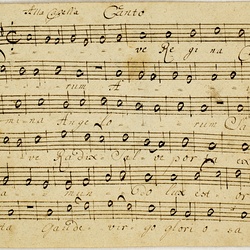 Alla Capella Canto
ve Re gi na C
rum A
mi na Ange lo rum
ve Radix Sal ve por ta
lux est or
Gaude vir go glori o sa